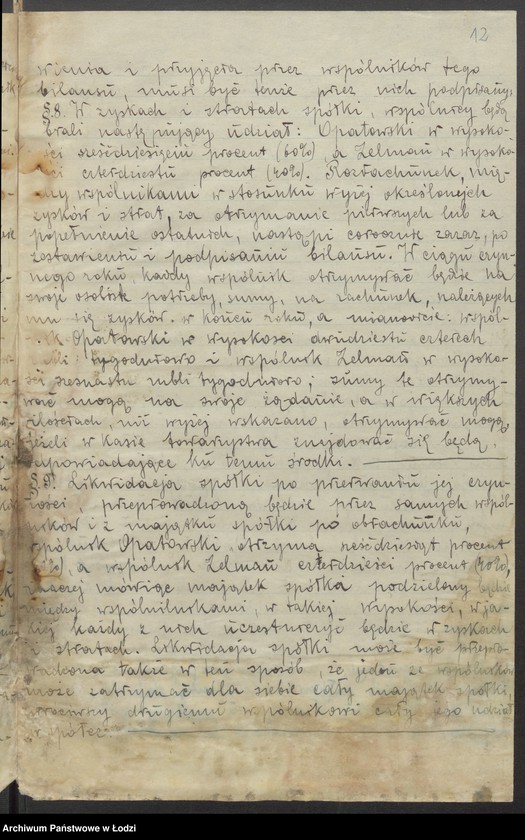 12
wienia i przyjęcia przez wspólników tego
bilansu, musi być tenże przez nich podpisany.
§.8. W zyskach i stratach spółki, wspólnicy będą
brali następujący udział: Opatowski w wysoko-
ści sześćdziesięciu procent (60%), a Zelman w wysoko-
ści czterdziestu procent (40%). Rozrachunek, mię-
dzy wspólnikami w stosunku wyżej określonych
zysków i strat, za otrzymanie pierwszych lub za
popełnienie ostatnich, nastąpi corocznie zaraz, po
zestawieniu i podpisaniu bilansu. W ciągu czyn-
nego roku każdy wspólnik otrzymywać będzie na
swoje osobiste potrzeby, sumy, na rachunek, należących
mu się zysków w końcu roku, a mianowicie: wspól-
Opatowski w wysokości dwudziestu czterech
tygodniowo i wspólnik Zelman w wysoko-
ści szesnastu rubli tygodniowo; sumy te otrzymy-
wać mogą na swoje żądanie, a w większych
ilościach, niż wyżej wskazano, otrzymywać mogą
jeżeli w kasie towarzystwa znajdować się będą,
odpowiadające ku temu środki.
§.9. Likwidacja spółki po przerwaniu jej czyn-
ności, przeprowadzoną będzie przez samych wspól-
ników i z majątku spółki po obrachunku,
wspólnik Opatowski otrzyma sześćdziesiąt procent
(60%), a wspólnik Zelman czterdzieści procent (40%),
inaczej mówiąc majątek spółka podzielony będzie
między wspólnikami, w takiej wysokości, w ja-
kiej każdy z nich uczestniczyć będzie w zyskach
i stratach. Likwidacja spółki może być przepro-
wadzona także w ten sposób, że jeden ze wspólników
może zatrzymać dla siebie cały majątek spółki,
drugiemu wspólnikowi cały jego udział
w spółce.
Archiwum Państwowe w Łodzi